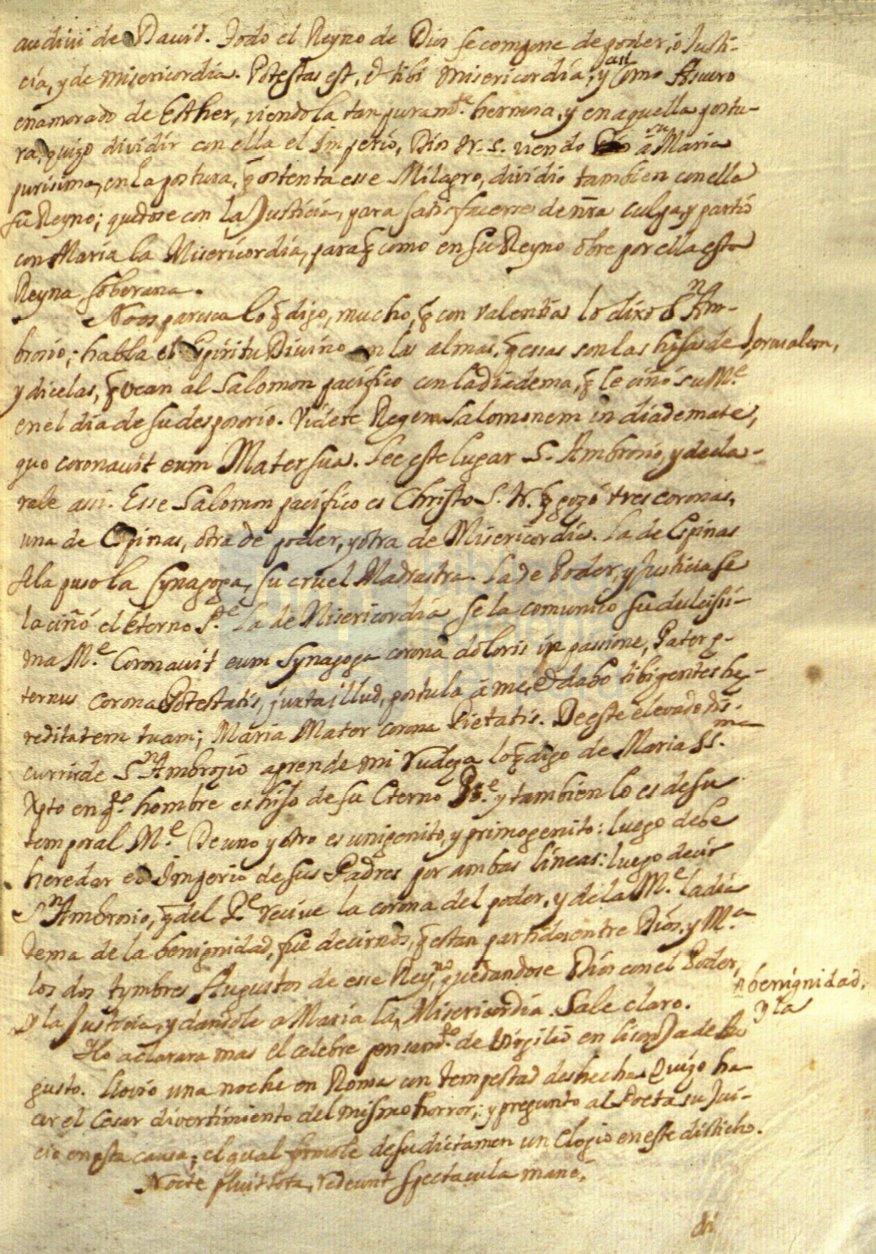 audivi de David. Todo el Reyno de Dios se compone de poder, ò Justi-
cia, y de misericordia. Potestas est, & tibi misericordia; y assi como Asuero
enamorado de Esther, viendola tan puramte. hermosa, y en aquella postu-
ra, quizo dividir con ella el Imperio, Dios N. S. viendo â Maria
purisima, en la postura, q̃ ostenta esse Milagro, dividio tambien con ella
su Reyno; quedose con la Justicia, para satisfacerse de ñra culpa, y partió
con Maria la Misericordia, para q̃ como en su Reyno obre por ella esta
Reyna soberana.
No os paresca lo q̃ digo, mucho, q̃ con valentia lo dixo Sn. Am-
brosio; habla el Espiritu Divino en las almas, q̃ essas son las hijas de Jerusalem,
y dicelas, q̃ vean al Salomon pacifico con la diadema, q̃ le ciñó su Me.
en el dia de su desposorio. Videte Regem Salomonem in diademate,
quo coronavit eum Mater sua. Lee este lugar S. Ambrosio, y decla-
rale assi. Esse Salomon pacifico es Christo S. N. q̃ gozó tres coronas,
una de Espinas, otra de poder, y otra de Misericordia. La de Espinas
se la puso la Synagoga, su cruel Madrastra. La de Poder, y Justicia se
la ciñó el eterno Pe. La de Misericordia se la comunicó su dulcissi-
ma Me. Coronavit eum Synagoga corona doloris in passione, Pater e-
ternus corona Potestatis, juxta illud, postula â me, & dabo tibi gentes he-
reditatem tuam; Maria Mater corona Pietatis. De este elevado dis-
currir de Sn. Ambrosio aprende mi rudeza lo q̃ digo de Maria SSma.
Xpto en qto. hombre es hijo de su Eterno Pe. y tambien lo es de su
temporal Me. De uno y otro es unigenito, y primogenito: luego debe
heredar el Imperio de sus Padres por ambas lineas: luego decir
Sn. Ambrosio, q̃ del Pe. recive la corona del poder, y de la Me. la dia
dema de la benignidad, fue decirnos, q̃ estan partidos entre Dios, y Me.
los dos tymbres Augustos de esse Reyno, quedandose Dios con el Poder,
y la Justicia, y dandole a Maria la benignidad, y la Misericordia. Sale claro.
Lo aclarara mas el celebre pensamto. de Virgilio en lisonja de Au
gusto. Llovió una noche en Roma con tempestad deshecha. Quizo ha-
cer el Cesar divertimiento del mismo horror, y preguntó al Poeta su jui-
cio en esta causa; el qual de su dictamen un Elogio en este disticho.
Nocte pluit tota, redeunt spectacula mane,